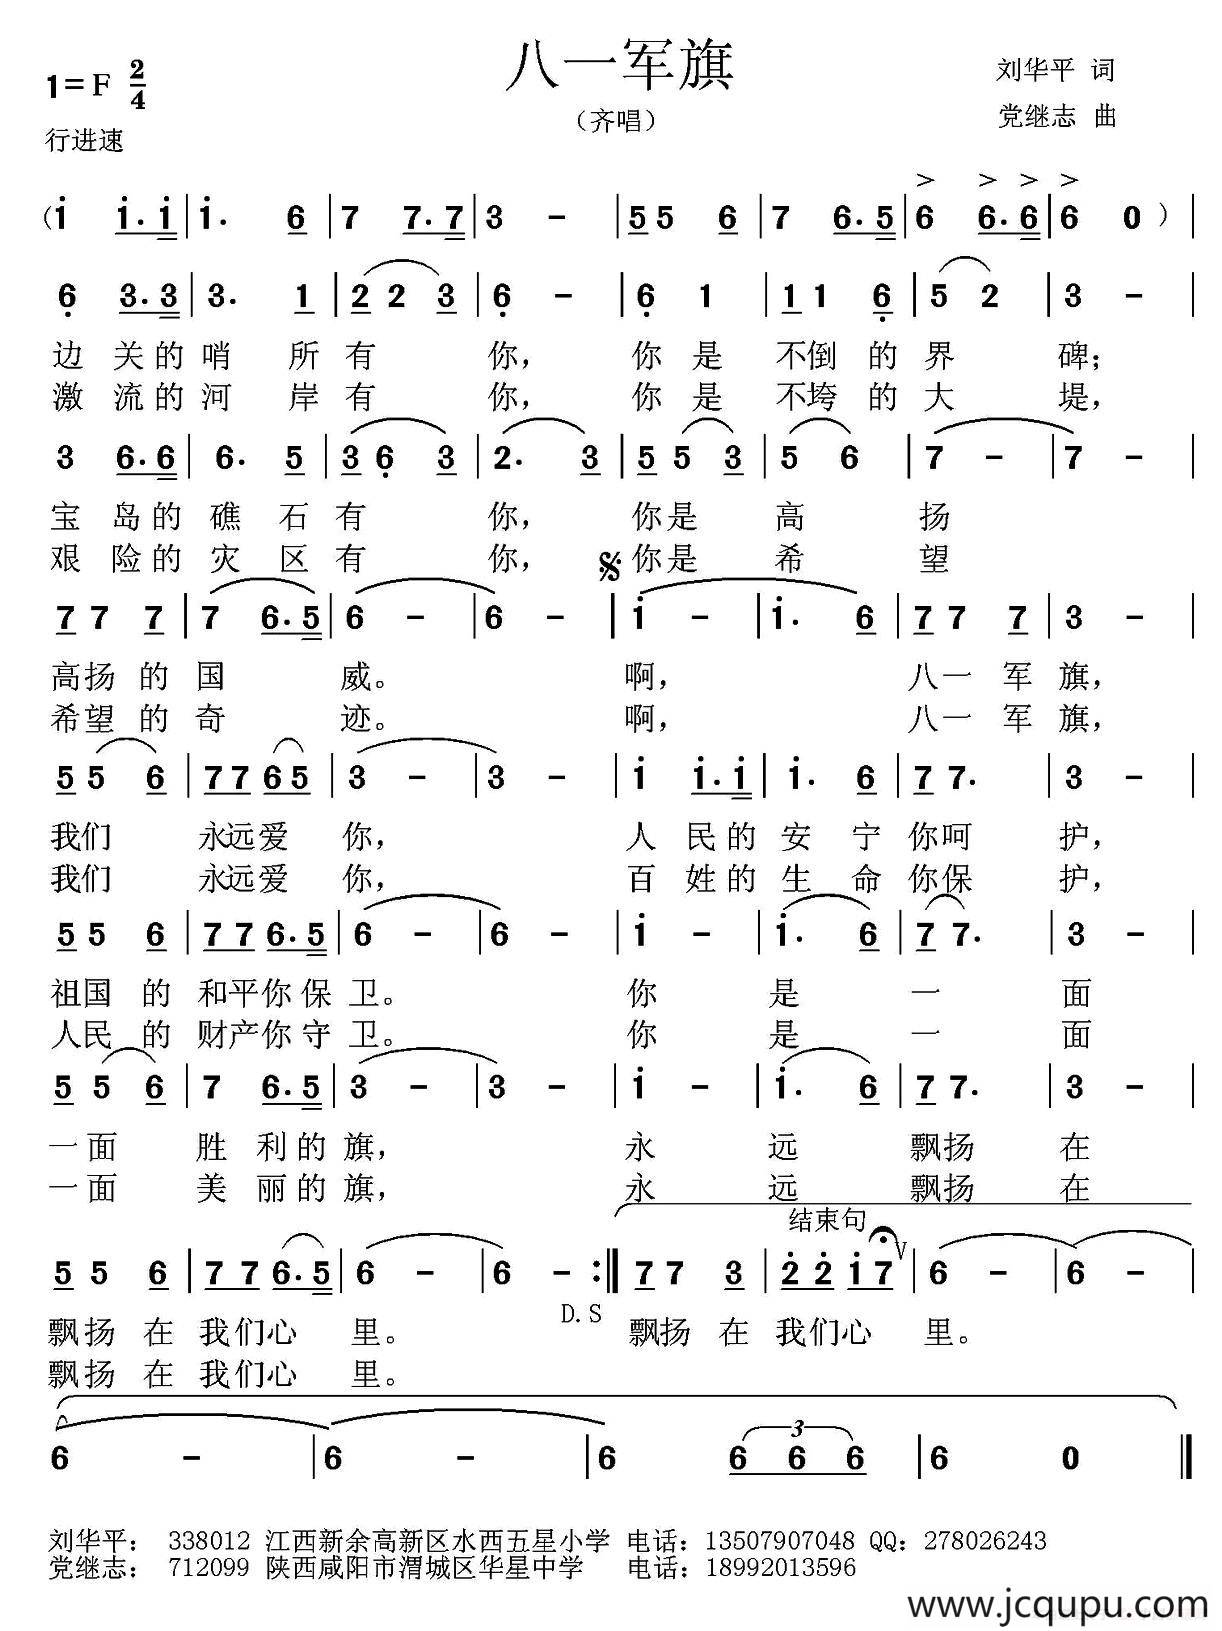 八一军旗
1=F 2/4
刘华平 词
（齐唱）
党继志 曲
行进速
(i i. i | i. 6 | 7 7. 7 | 3 - | 5 5 6 | 7 6. 5 | 6 6. 6 | 6 0 ) |
6 3. 3 | 3. 1 | 2 2 3 | 6 - | 6 1 | 1 1 6 | 5 2 | 3 - |
边 关 的 哨 所 有 你， 你 是 不倒 的 界 碑；
激 流 的 河 岸 有 你， 你 是 不垮 的 大 堤，
3 6. 6 | 6. 5 | 3 6 3 | 2. 3 | 5 5 3 | 5 6 | 7 - | 7 - |
宝 岛 的 礁 石 有 你， 你是 高 扬
艰 险 的 灾 区 有 你， 你是 希 望
7 7 7 | 7 6. 5 | 6 - | 6 - | i - | i. 6 | 7 7 7 | 3 - |
高扬 的 国 威。 啊， 八一 军 旗，
希望 的 奇 迹。 啊， 八一 军 旗，
5 5 6 | 7 7 6 5 | 3 - | 3 - | i i. i | i. 6 | 7 7. | 3 - |
我们 永远爱 你， 人 民 的 安 宁 你呵 护，
我们 永远爱 你， 百 姓 的 生 命 你保 护，
5 5 6 | 7 7 6. 5 | 6 - | 6 - | i - | i. 6 | 7 7. | 3 - |
祖国 的 和平你 保 卫。 你 是 一 面
人民 的 财产你 守 卫。 你 是 一 面
5 5 6 | 7 6. 5 | 3 - | 3 - | i - | i. 6 | 7 7. | 3 - |
一面 胜 利 的 旗， 永 远 飘扬 在
一面 美 丽 的 旗， 永 远 飘扬 在
结束句
5 5 6 | 7 7 6. 5 | 6 - | 6 - :‖ 7 7 3 | 2 2 i 7 V | 6 - | 6 - |
D.S
飘扬 在 我们心 里。 飘扬 在 我们心 里。
飘扬 在 我们心 里。
6 - | 6 - | 6 3 6 6 6 | 6 0 ‖
刘华平： 338012 江西新余高新区水西五星小学 电话：13507907048 QQ：278026243
党继志： 712099 陕西咸阳市渭城区华星中学 电话：18992013596
www.jcqupu.com